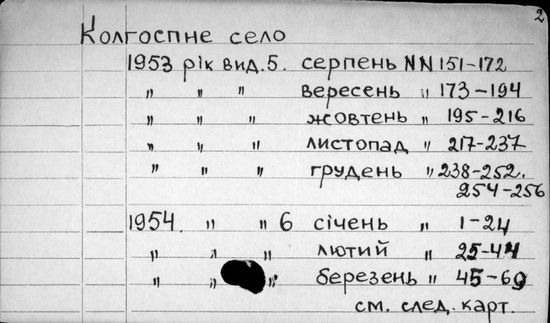 2
Колгоспне село
1953 рік вид. 5. серпень NN 151-172
„ „ „ вересень „ 173-194
„ „ „ жовтень „ 195-216
„ „ „ листопад „ 217-237
„ „ „ грудень „ 238-252.
254-256
1954. „ „ 6 січень „ 1-24
„ „ „ лютий „ 25-44
„ „ „ березень „ 45-69
см. след. карт.